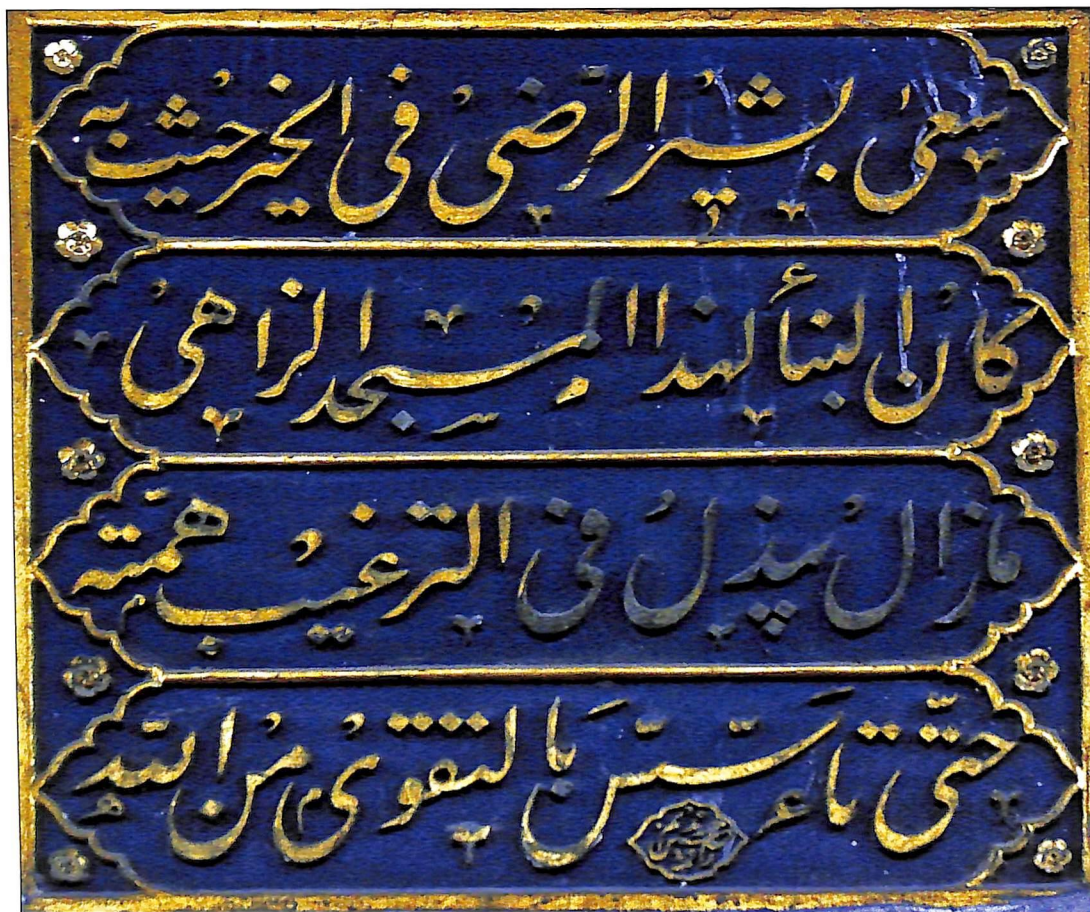 سعى بشير الرضى فى الخير حيث به
كان البناء لهذا المسجد الزاهى
مازال يبذل فى الترغيب همته
حتى تأسس بالتقوى من الله